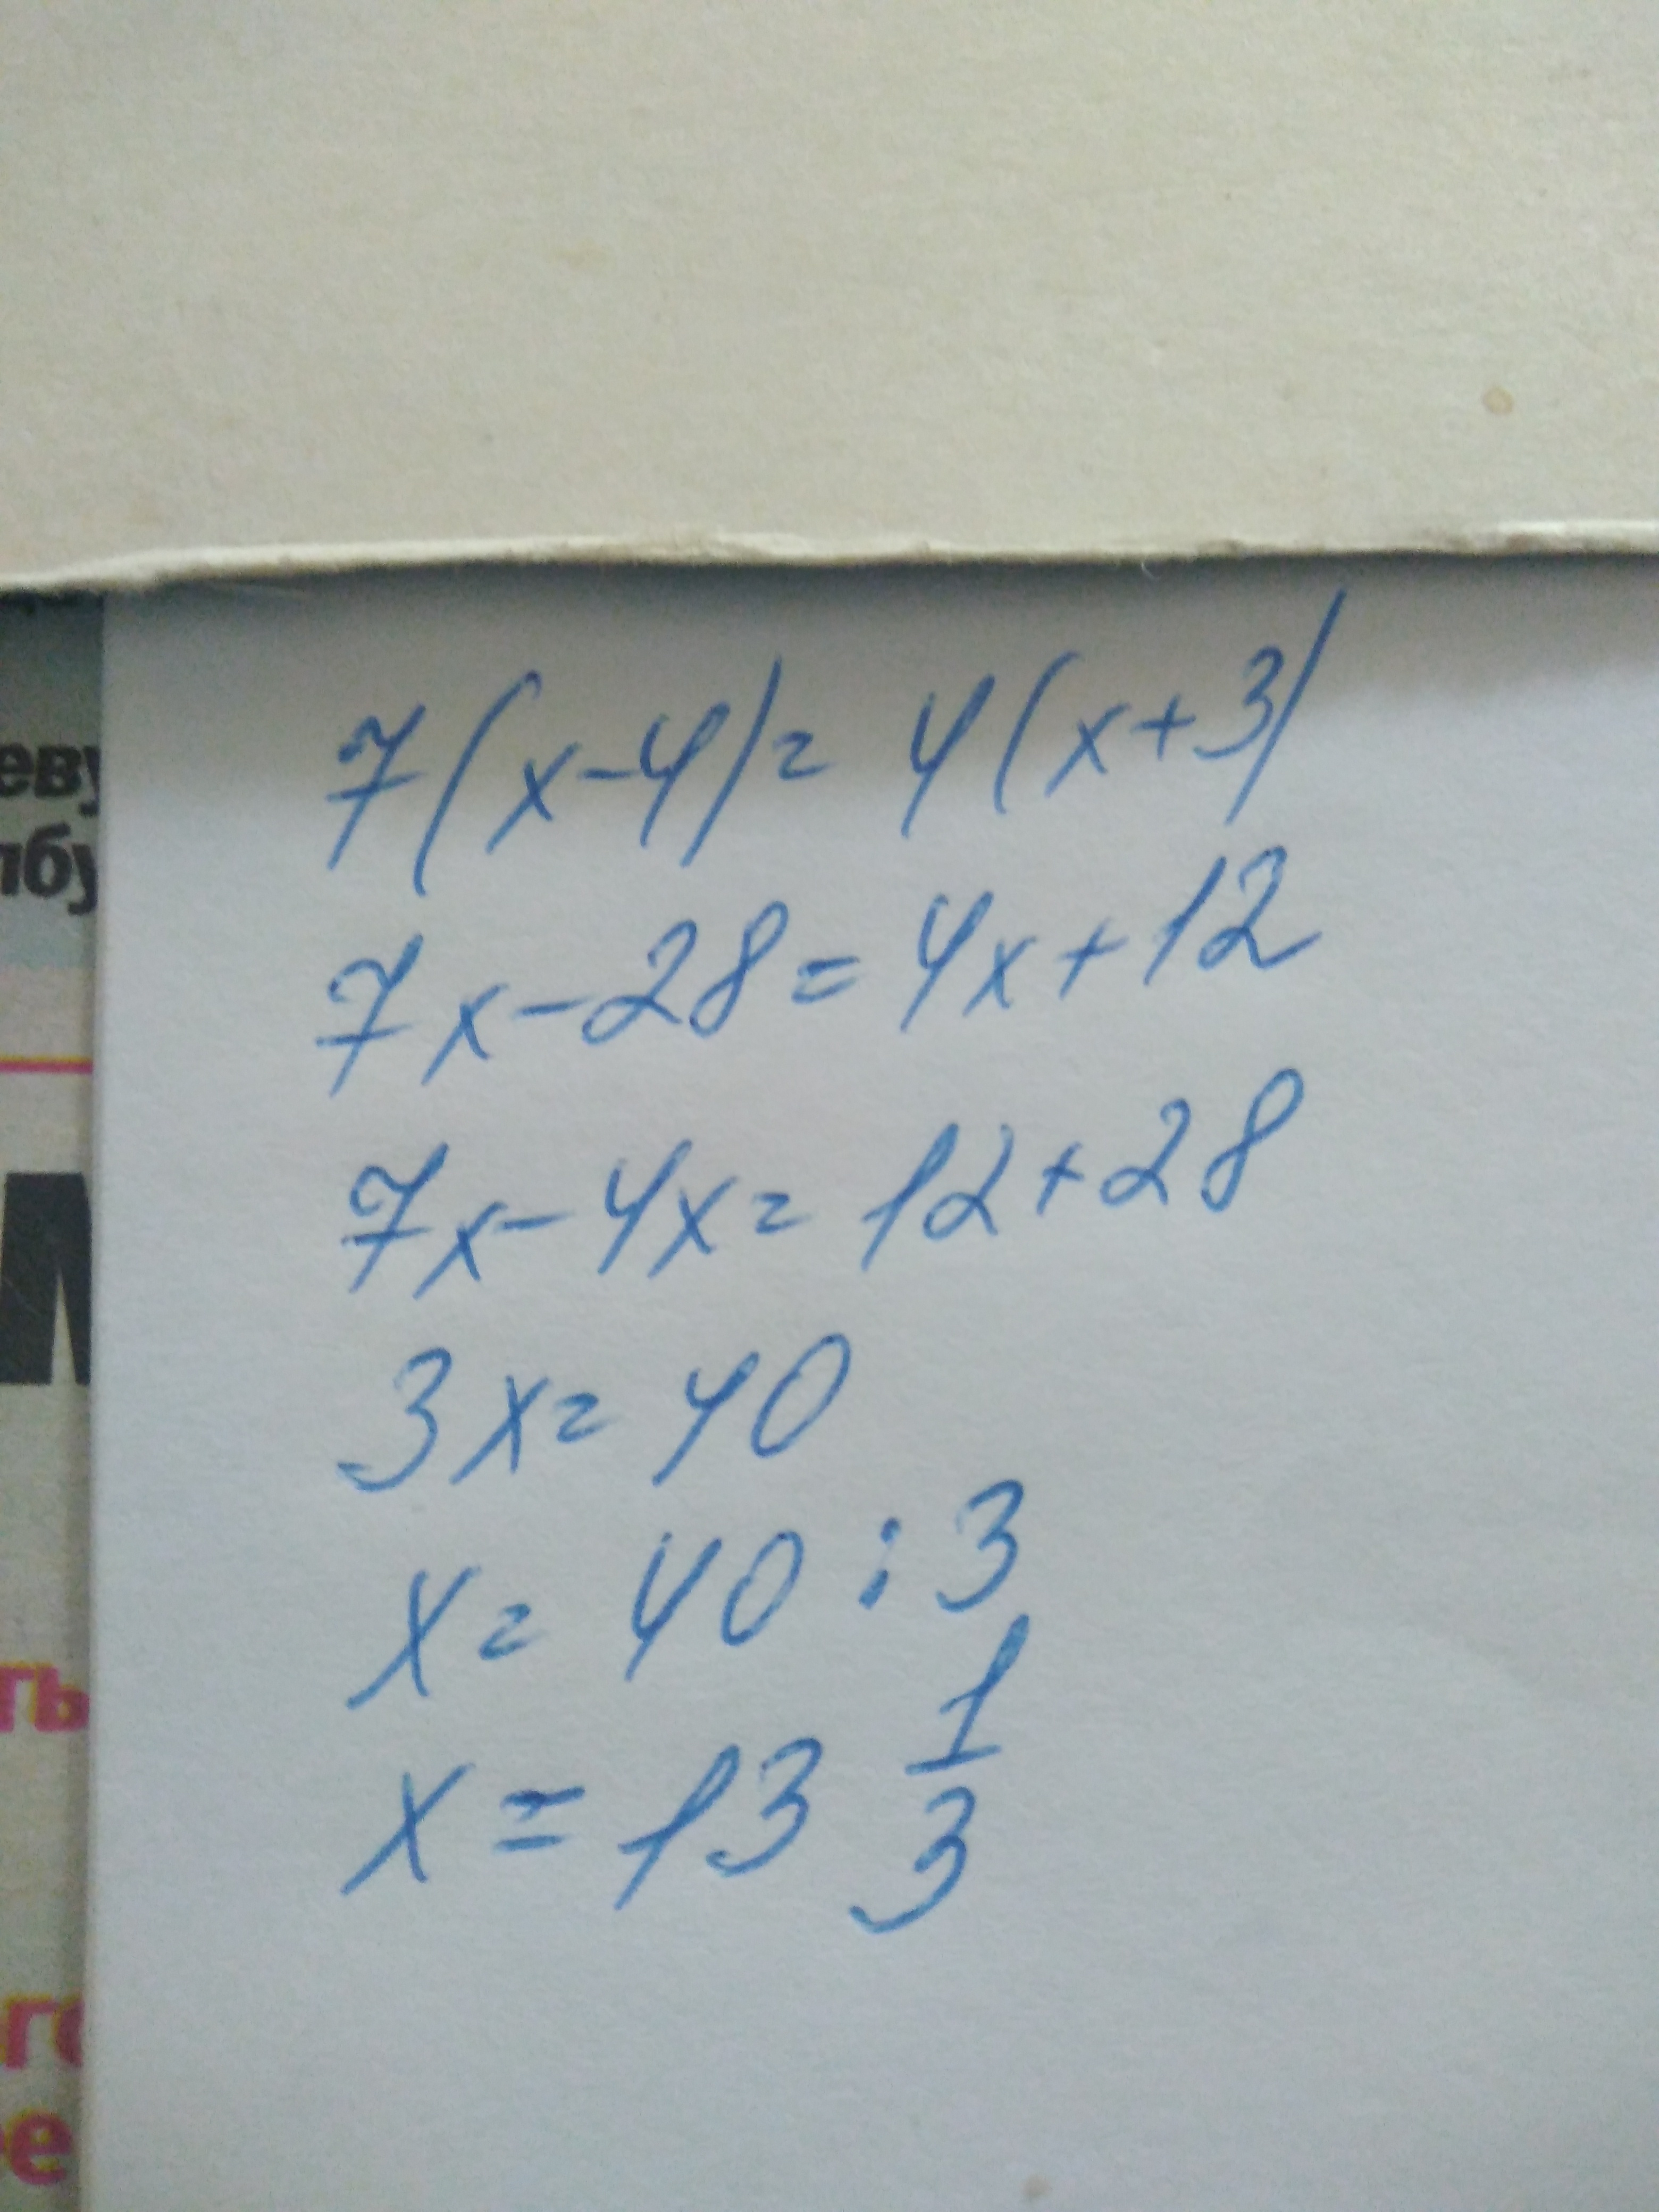 7(x-4)=4(x+3)
7x-28=4x+12
7x-4x=12+28
3x=40
x=40:3
x=13 1/3
еву
лбу
м
ть
го
ее